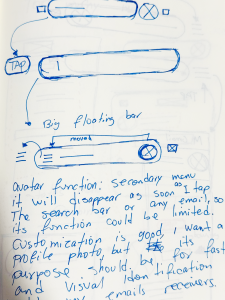 TAP
Big floating bar
moved
avatar function: secondary menu
it will disappear as soon as I tap
The search bar or any email, so
its function could be limited.
Customization is good, I want a
profile photo, but its
purpose should be for fast
and visual identification
emails receivers.